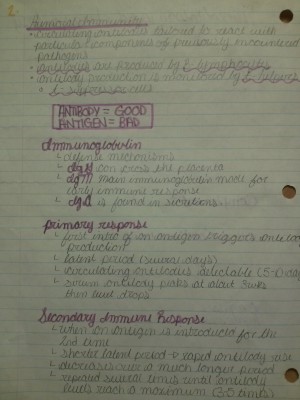 2
Humoral Immunity
• circulating antibodies tailored to react with
particular components of previously encountered
pathogens
• antibodies are produced by B-lymphocytes
• antibody production is monitored by
suppressor cells
ANTIBODY = GOOD
ANTIGEN = BAD
Immunoglobulin
└ defense mechanisms
└ IgG can cross the placenta
└ IgM main immunoglobulin made for
early immune response
└ IgA is found in secretions
primary response
└ first intro of an antigen triggers antibody
production
└ latent period (several days)
└ circulating antibodies detectable (5-10 days
└ serum antibody peaks at about 3wks
then level drops
Secondary Immune Response
└ when an antigen is introduced for the
2nd time
└ shorter latent period → rapid antibody rise
└ decreases over a much longer period
└ repeated several times until antibody
levels reach a maximum